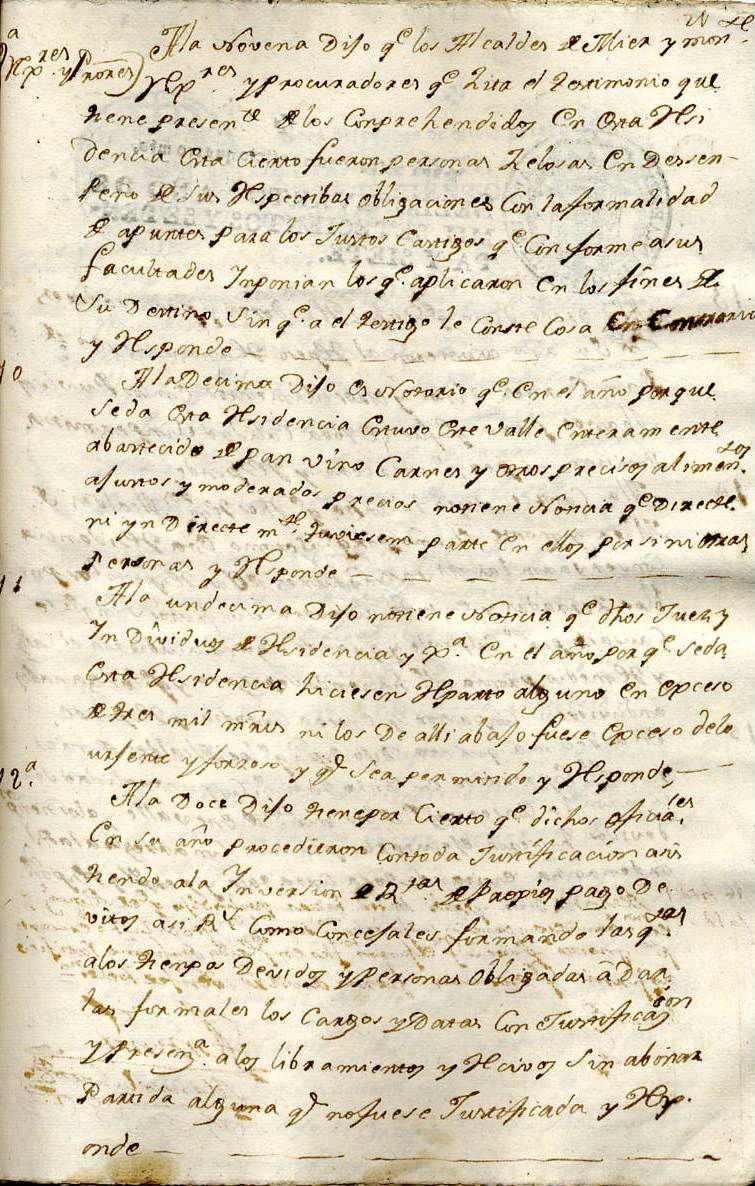 A la Novena Dijo qe. los Alcaldes de Mier y mon-
9a
Rxpres. y Prores) Rxpres y procuradores qe Zita el testimonio que
tiene presente de los Conprehendidos en esta Rsi
dencia esta Cierto fueron personas Zelosas en Desen-
peño de sus Rspectibas obligaciones Con la formalidad
de apuntes para los Justos Castigos qe Conforme a sus
facultades Inponian los qe. aplicaron en los fines de
Su Destino sin qe. a el testigo le Conste Cosa en Contrario
y Rsponde
10 A la Decima Dijo es Notorio qe. en el año porque
se da esta Rsidencia estuvo este Valle enteramente
abastecido de pan vino Carnes y otros precisos alimentos
a justos y moderados precios no tiene Noticia qe Directe.
ni yn Directe mte. tuviesem parte en ellos por si ni otras
personas y Rsponde
11 A la undecima Dijo no tiene Noticia qe dhos Juez y
In Dividuos de Rsidencia y Pa. en el año, por qe se da
esta Rsidencia hiciesen Rparto alguno en epceso
de tres mil mrvs ni los De alli abajo fuese epceso de lo
urjente y forzoso y qe sea permitido y Rsponde,
12a. A la Doce Dijo tiene por Cierto qe. dichos oficiales
en su año procedieron Con toda Justificacion asis
tiendo a la Inversion de Rtas de Propios pago De
vitos asi Rs Como Concejales formando las qtas
a los tienpos Devidos y personas obligadas â Dar
las formales los Cargos y Datas Con Justificazon
y Presena. a los libramientos y Rcivos sin abonar
Partida alguna qe no fuese Justificada y Rsp.
onde